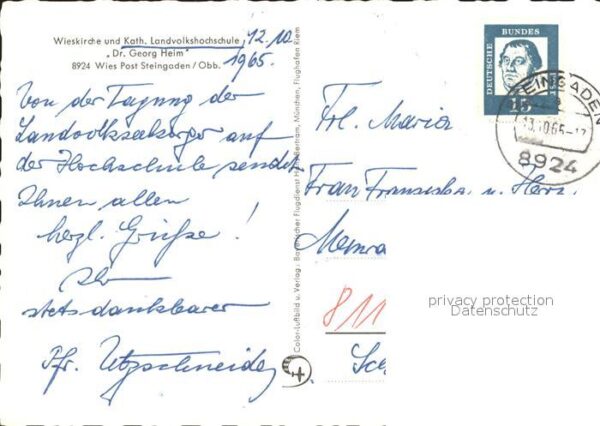 Wieskirche und Kath. Landvolkshochschule
"Dr. Georg Heim"
8924 Wies Post Steingaden / Obb.
12.10.
1965.
Von der Tagung der
Landvolkseelsorger auf
der Hochschule sendet
Ihnen allen
herzl. Grüße!
Ihr
stets dankbarer
Pfr. Utzschneider
Color-Luftbild u. Verlag: Bayerischer Flugdienst H. Bertram, München, Flughafen Riem
DEUTSCHE BUNDES
15
STEINGADEN
13.10.65-17
8924
Frl. Maria
Frau Franziska u. Herr
811
privacy protection
Datenschutz